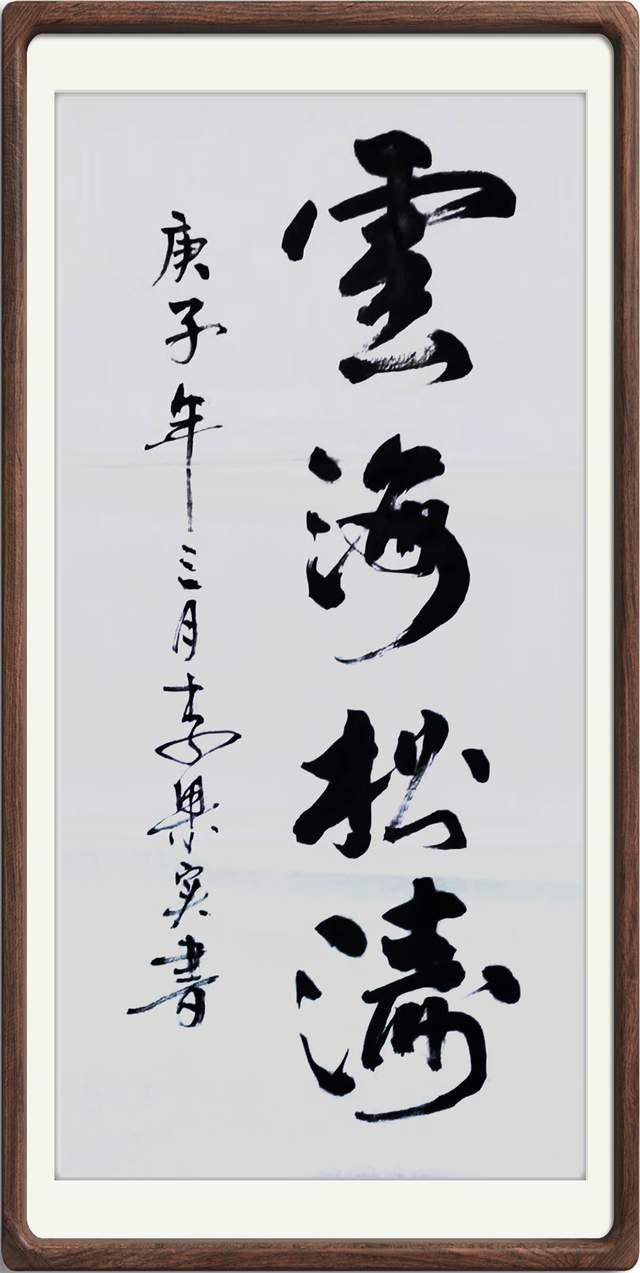 雲海松濤
庚子年三月李果实書